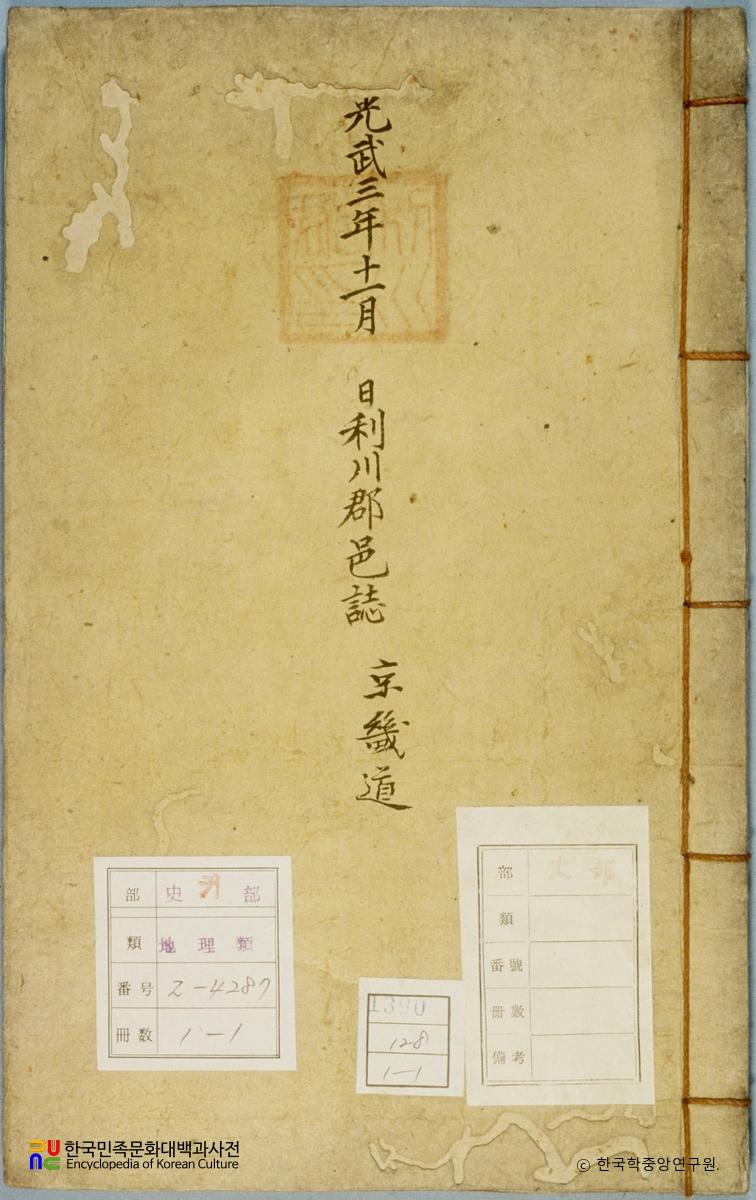 光武三年十一月 日利川郡邑誌 京畿道
部 史 키 部
類 地理類
番号 Z-4287
冊数 1-1
1390
128
1-1
部 史部
類
番號
冊數
備考
한국민족문화대백과사전
Encyclopedia of Korean Culture
© 한국학중앙연구원.